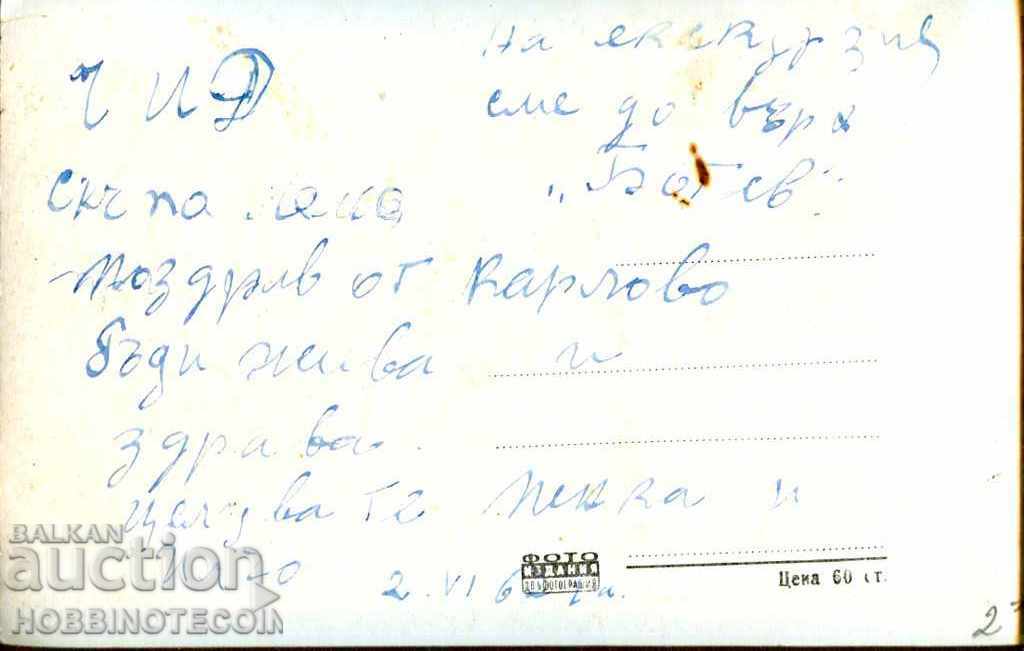 Ч И Д
на екскурзия
сме до връх
„Ботев".
скъпа
Поздрав от Карлово
бъди жива и
здрава.
целува те Пенка и
2. VI 6
ФОТО
ИЗДАНИЯ
ДП ФОТОГРАФИЯ
Цена 60 ст.
2
BALKAN
auction
HOBBINOTECOIN